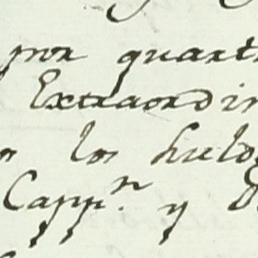 por quart
Extraordin
los hulo
Capp.n y